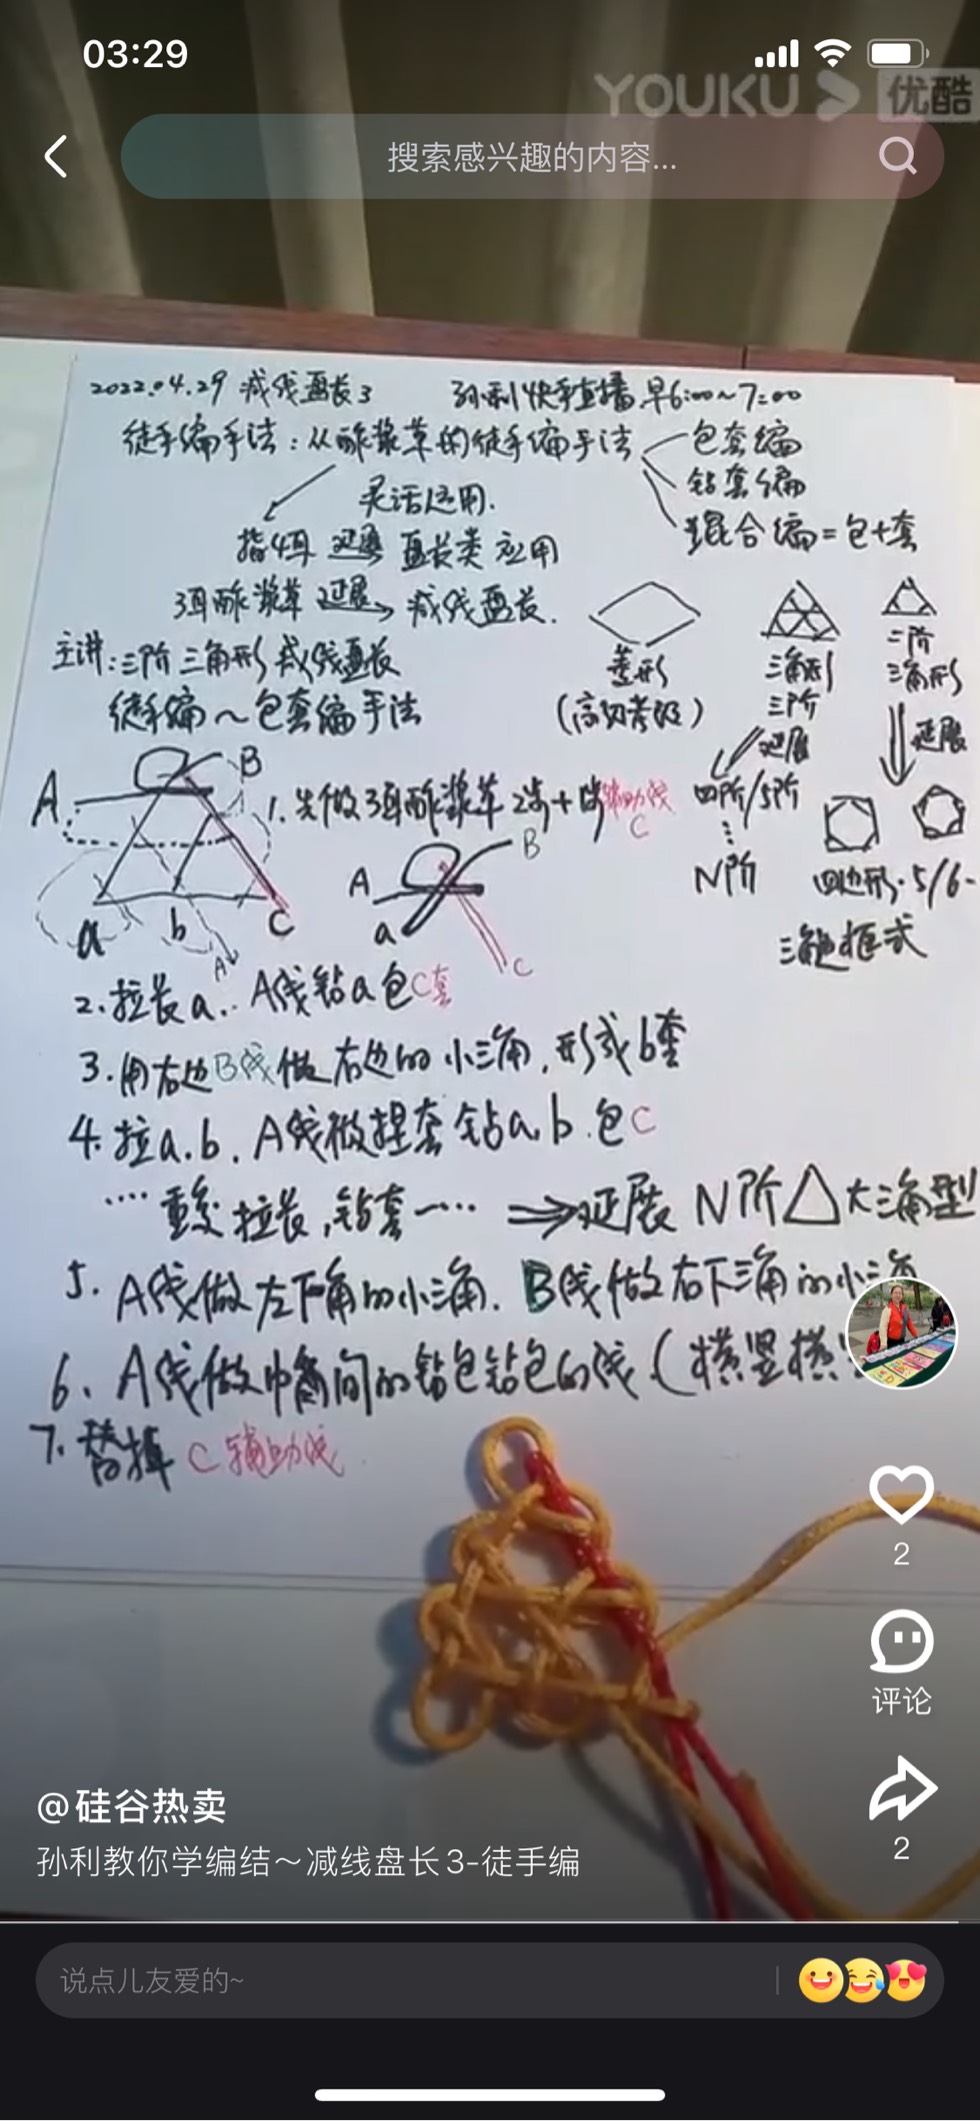 03:29
YOUKU 优酷
搜索感兴趣的内容...
2022.04.29 减线盘长3 孙利快手直播 早6:00~7:00
徒手编手法：从酢浆草的徒手编手法
包套编
钻套编
混合编=包+套
灵活运用.
指 延展 盘长类 应用
3耳酢浆草 延展 减线盘长.
主讲：三阶三角形减线盘长
徒手编～包套编手法
菱形
三角形
三阶
二阶
三角形
延展
延展
四阶/5阶
N阶
四边形·5/6-
A B
a b C
A
1.先做3耳酢浆草 辅助线
C
A B
a C
2.拉长a.. A线钻a包C套
3.用右边B线做右边的小三角,形成b套
4.拉a.b. A线做 套钻a.b.包C
····重复拉长,钻套一···· ⇒延展 N阶△大三角型
5. A线做左下角的小三角. B线做右下三角的小三角
6. A线做中 间的钻包钻包的线(横竖横
7.替掉 C辅助线
2
评论
2
@硅谷热卖
孙利教你学编结～减线盘长3-徒手编
说点儿友爱的~